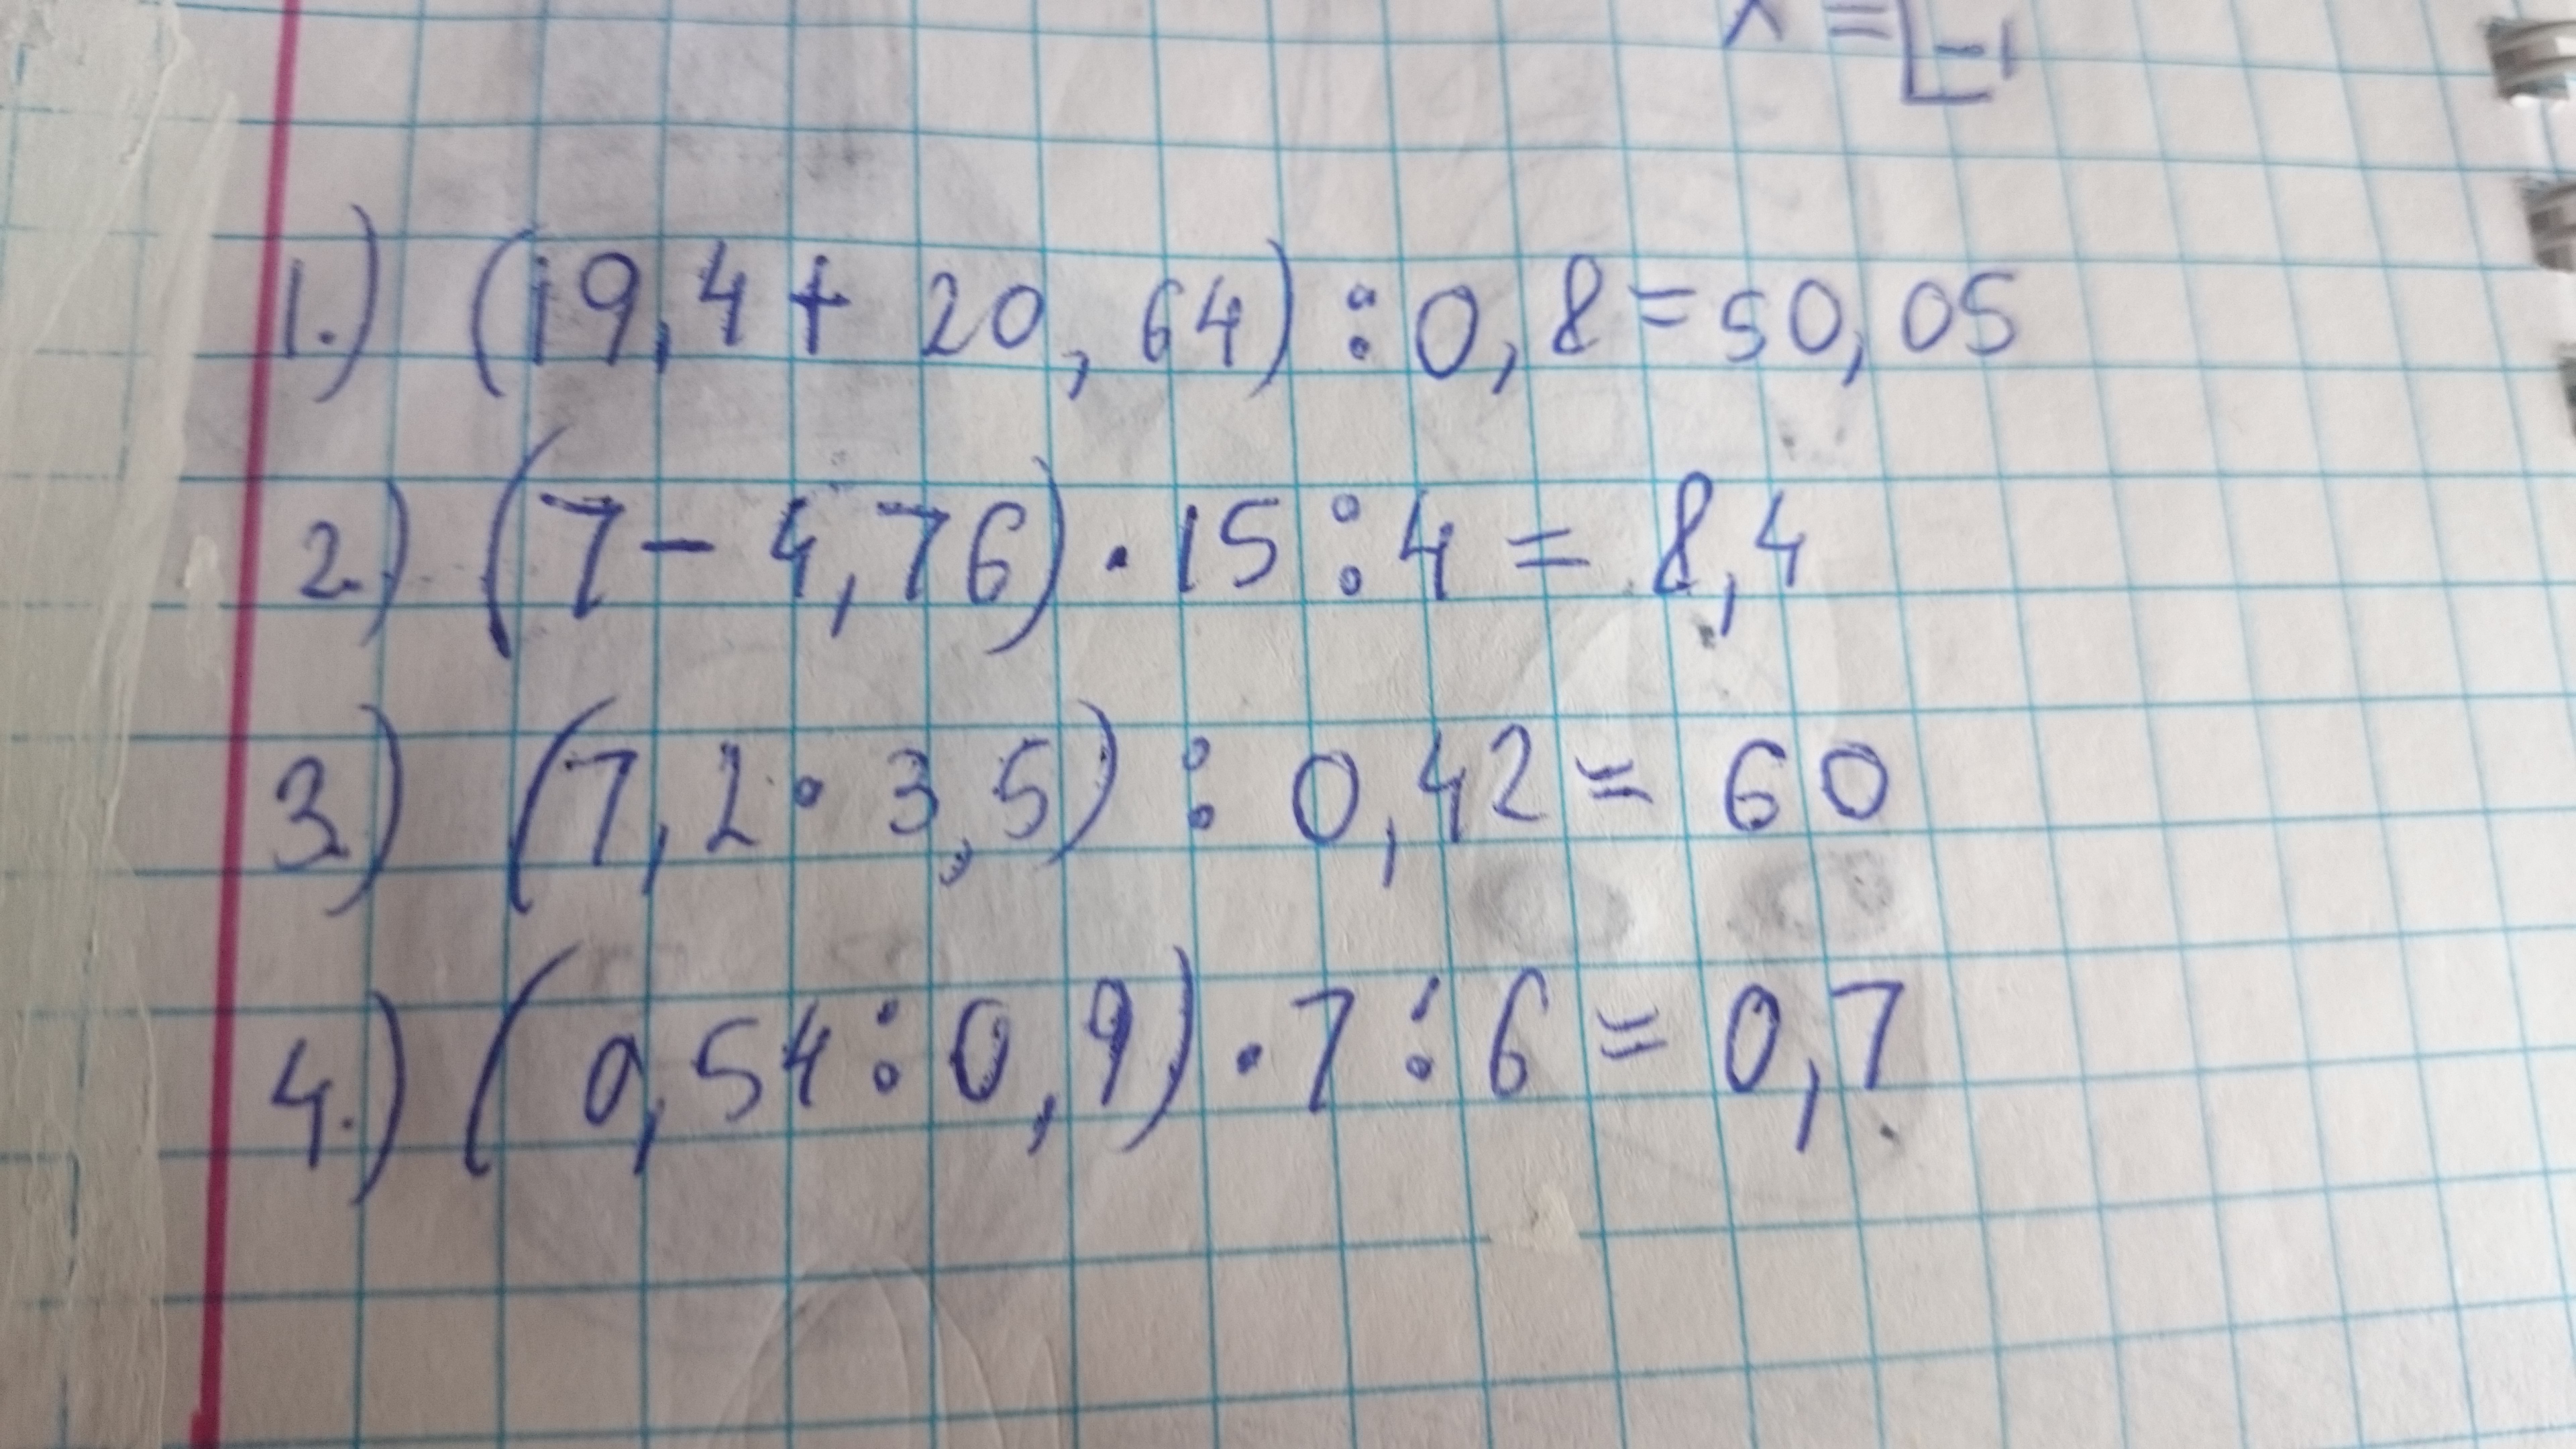 1.) (19,4 + 20,64) : 0,8 = 50,05
2.) (7 - 4,76) · 15 : 4 = 8,4
3.) (7,2 · 3,5) : 0,42 = 60
4.) (0,54 : 0,9) · 7 : 6 = 0,7